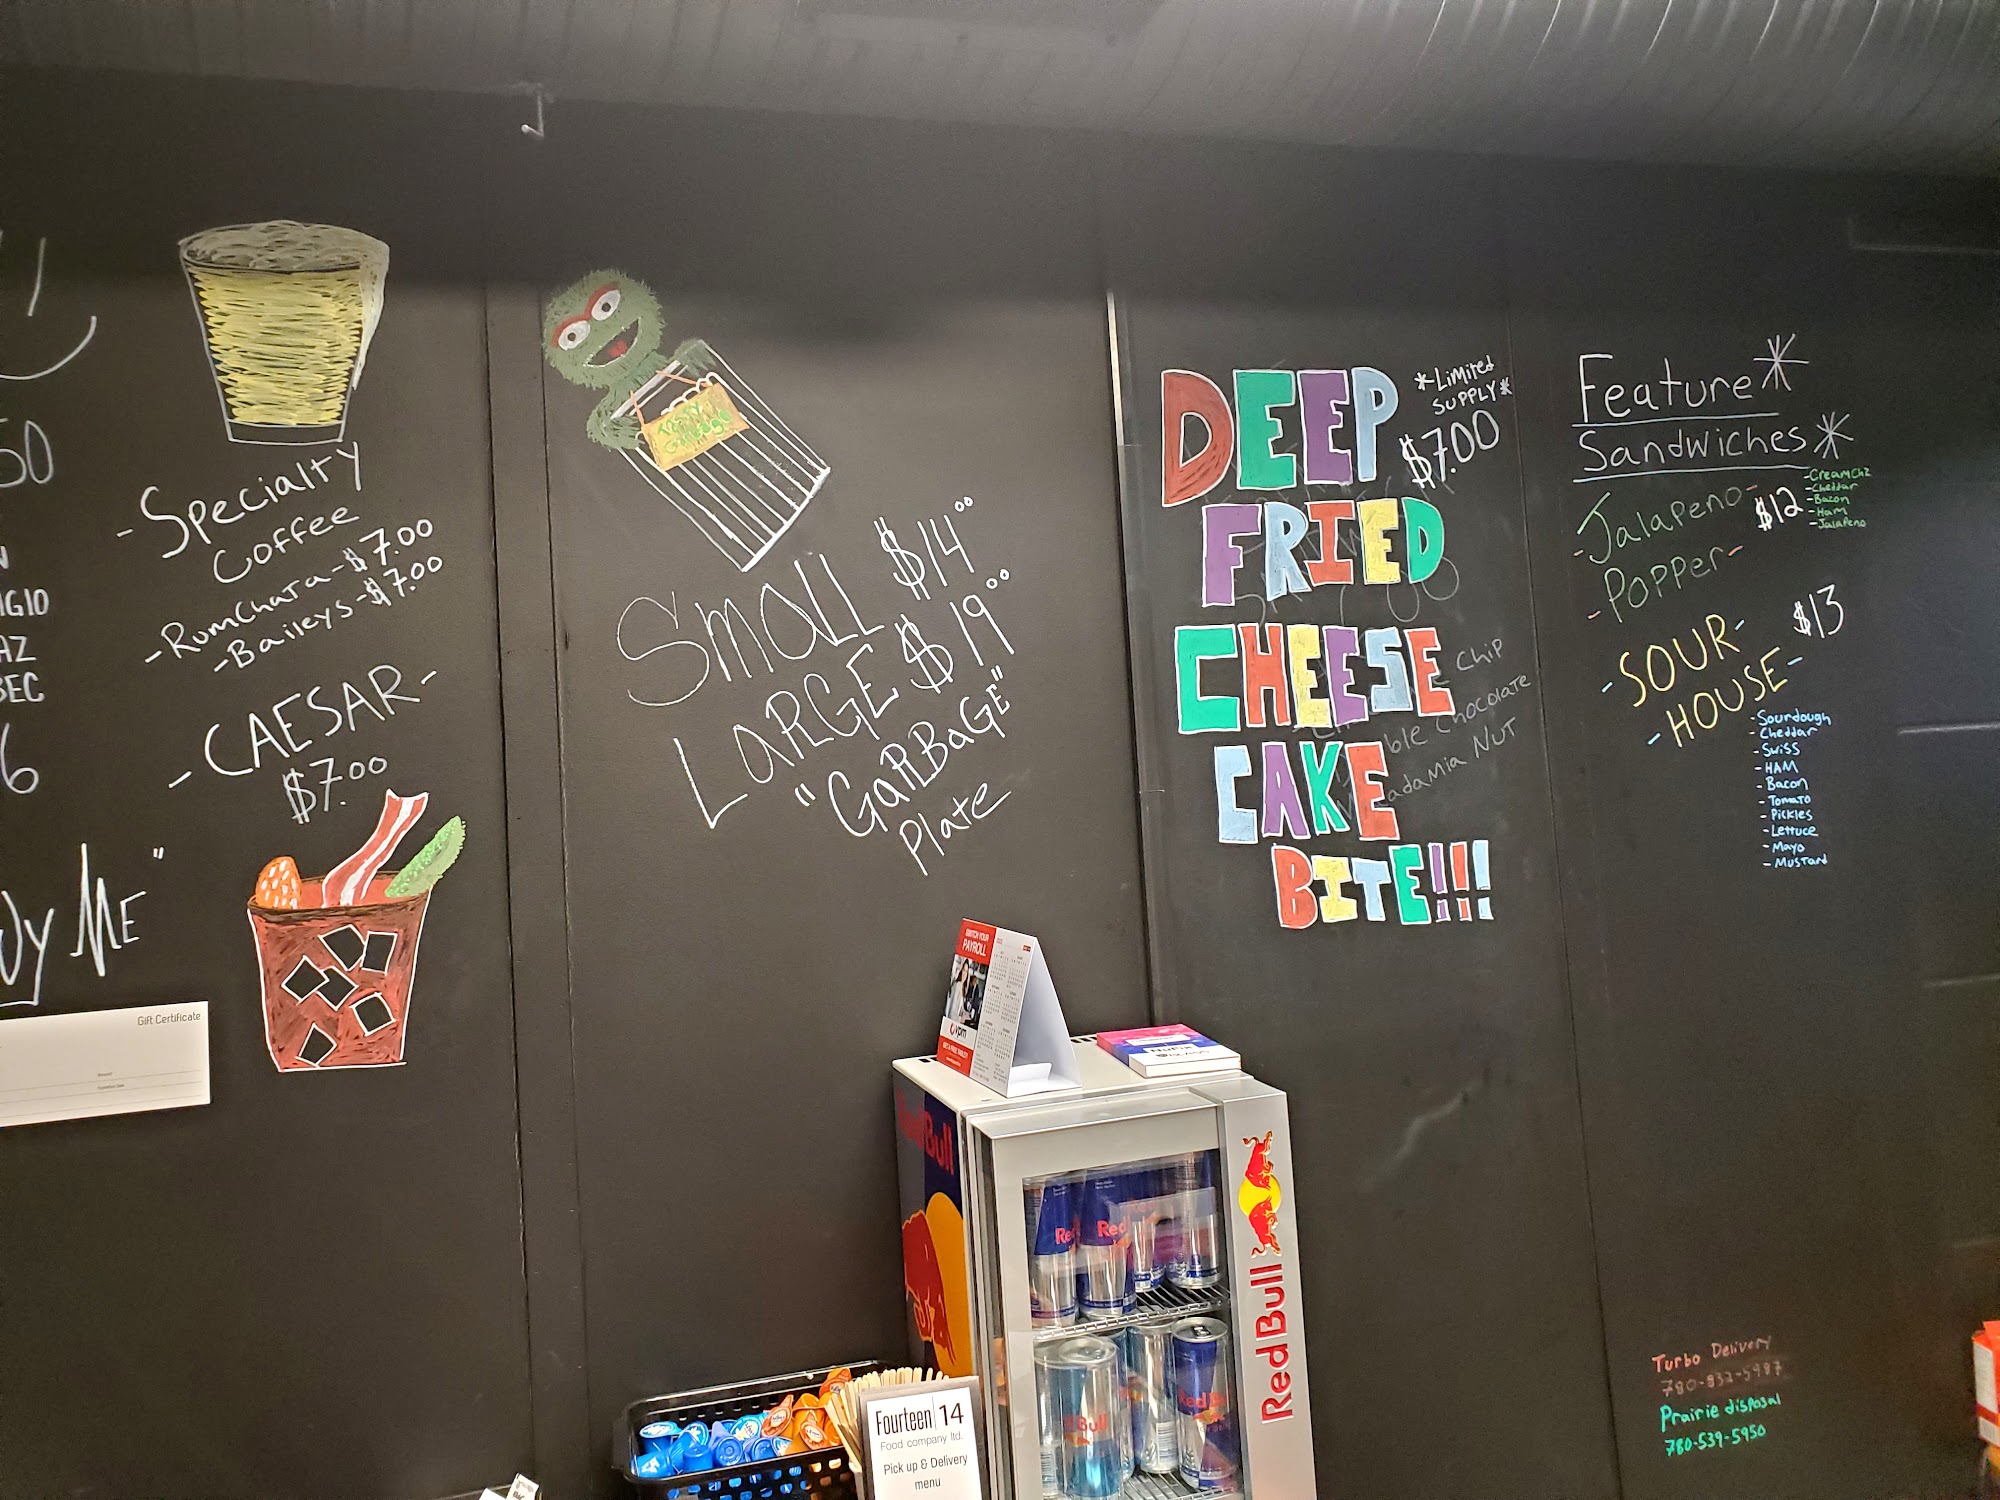 50
GIO
AZ
BEC
6
Me"
Gift Certificate
-Specialty
Coffee
-RumChata-$7.00
-Baileys-$7.00
-CAESAR-
$7.00
Small $14⁰⁰
LARGE $19⁰⁰
"GARBAGE"
Plate
DEEP
*Limited
SUPPLY*
$7.00
FRIED
CHEESE
CAKE
BITE!!!
Chip
Chocolate
Nut
Feature*
Sandwiches*
-Jalapeno-
-Popper-
$12
-CreamChz
-Cheddar
-Bacon
-Ham
-Jalapeno
-SOUR-
-HOUSE-
$13
-Sourdough
-Cheddar
-Swiss
-HAM
-Bacon
-Tomato
-Pickles
-Lettuce
-Mayo
-Mustard
SWITCH YOUR
PAYROLL
vpm
RedBull
Red Bull
Red Bull
Fourteen|14
Food company ltd.
Pick up & Delivery
menu
Turbo Delivery
780-832-5987
Prairie disposal
780-539-5950